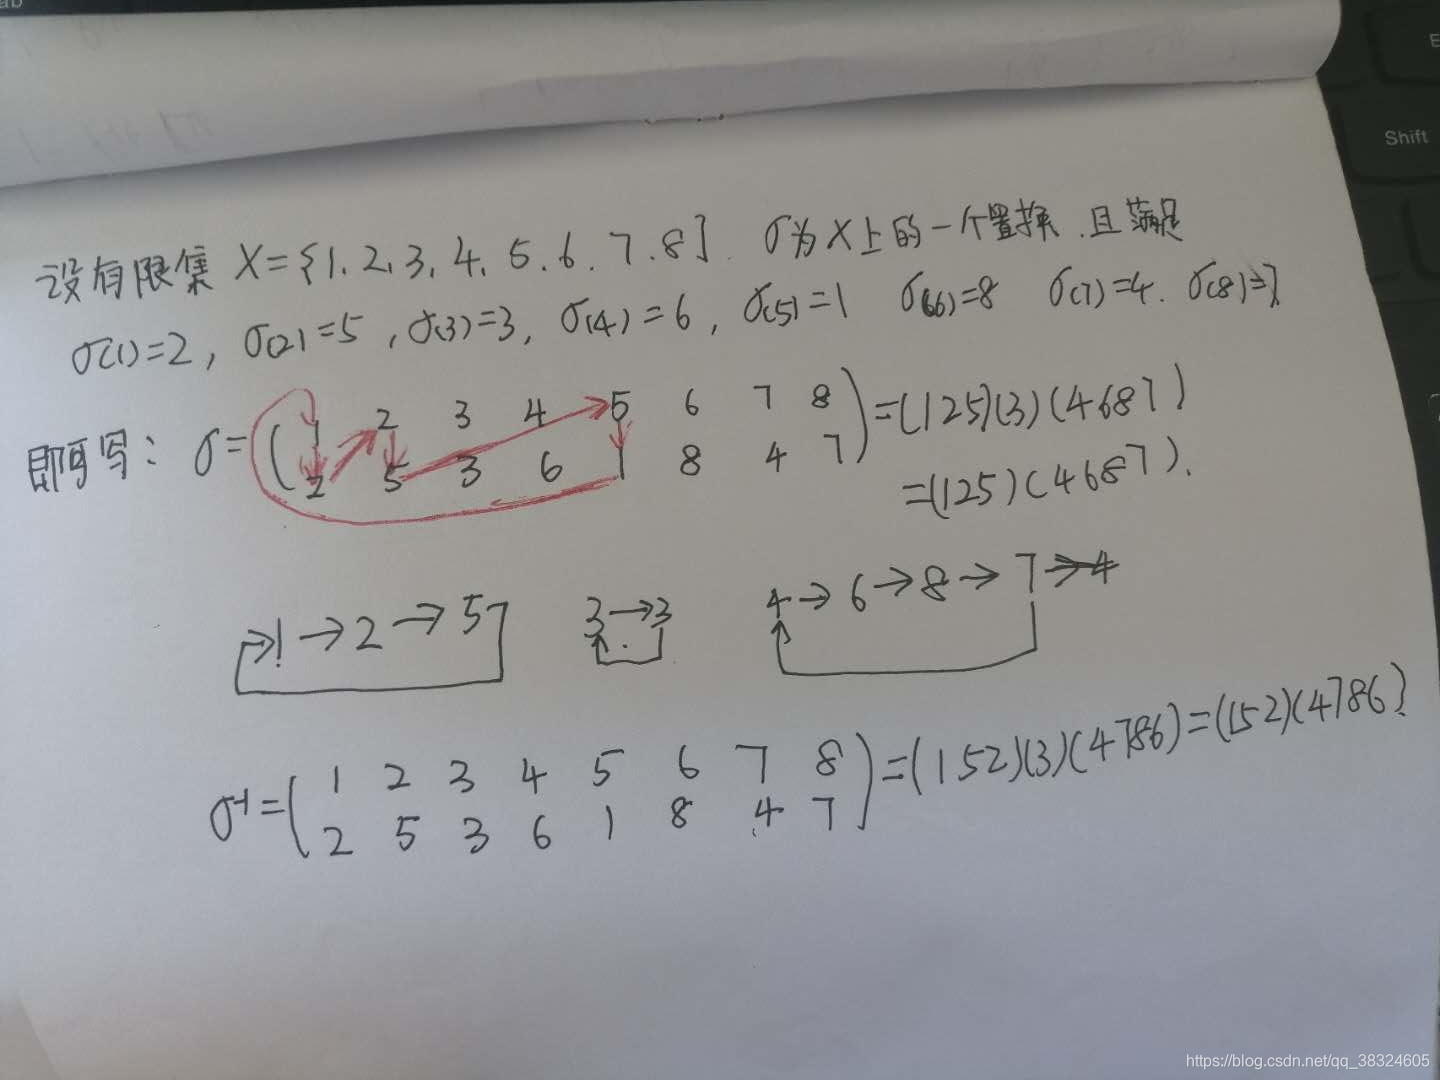 ab
E
Shift
设有限集 X={1.2,3,4,5.6.7.8}. σ为X上的一个置换.且满足
σ(1)=2, σ(2)=5, σ(3)=3, σ(4)=6, σ(5)=1 σ(6)=8 σ(7)=4. σ(8)=7
即可写: σ=( 1 2 3 4 5 6 7 8 )=(125)(3)(4687)
2 5 3 6 1 8 4 7
=(125)(4687).
→1→2→5 3→3 4→6→8→7→4
σ-1=( 1 2 3 4 5 6 7 8 )=(152)(3)(4786)=(152)(4786).
2 5 3 6 1 8 4 7
https://blog.csdn.net/qq_38324605